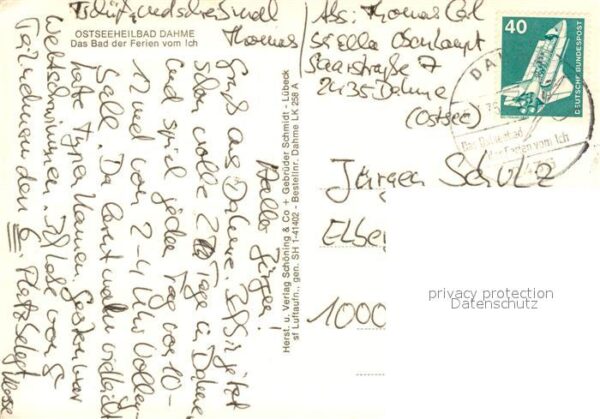 OSTSEEHEILBAD DAHME
Das Bad der Ferien vom Ich
Hallo Jürgen!
Gruß aus Dahme. Ich bin jetzt
schon volle 2 Tage in Dahme
und spiel jeden Tag von 10-
12 und von 2-4 Uhr Volley-
balle. Da lernt man vielleicht
tote Typen kennen. Gestern war
Wettschwimmen. Ich habe von 8
Teilnehmern den 6. Platz belegt
Tschüß und schreib mal
Thomas
Herst. u. Verlag Schöning & Co + Gebrüder Schmidt - Lübeck
sf Luftaufn., gen. SH 1-41402 - Bestellnr. Dahme LK 258 A
Abs: Thomas
Saarstraße 7
2435 Dahme
(Ostsee)
40
DEUTSCHE BUNDESPOST
DAHME
Das Ostseebad
der Ferien vom Ich
Jürgen Schulz
Elbe
1000
privacy protection
Datenschutz